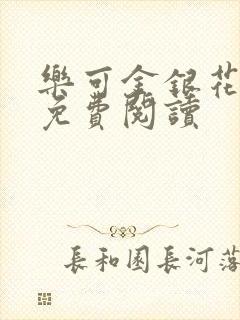 樂可金銀花
免費閱讀
長和園長河落